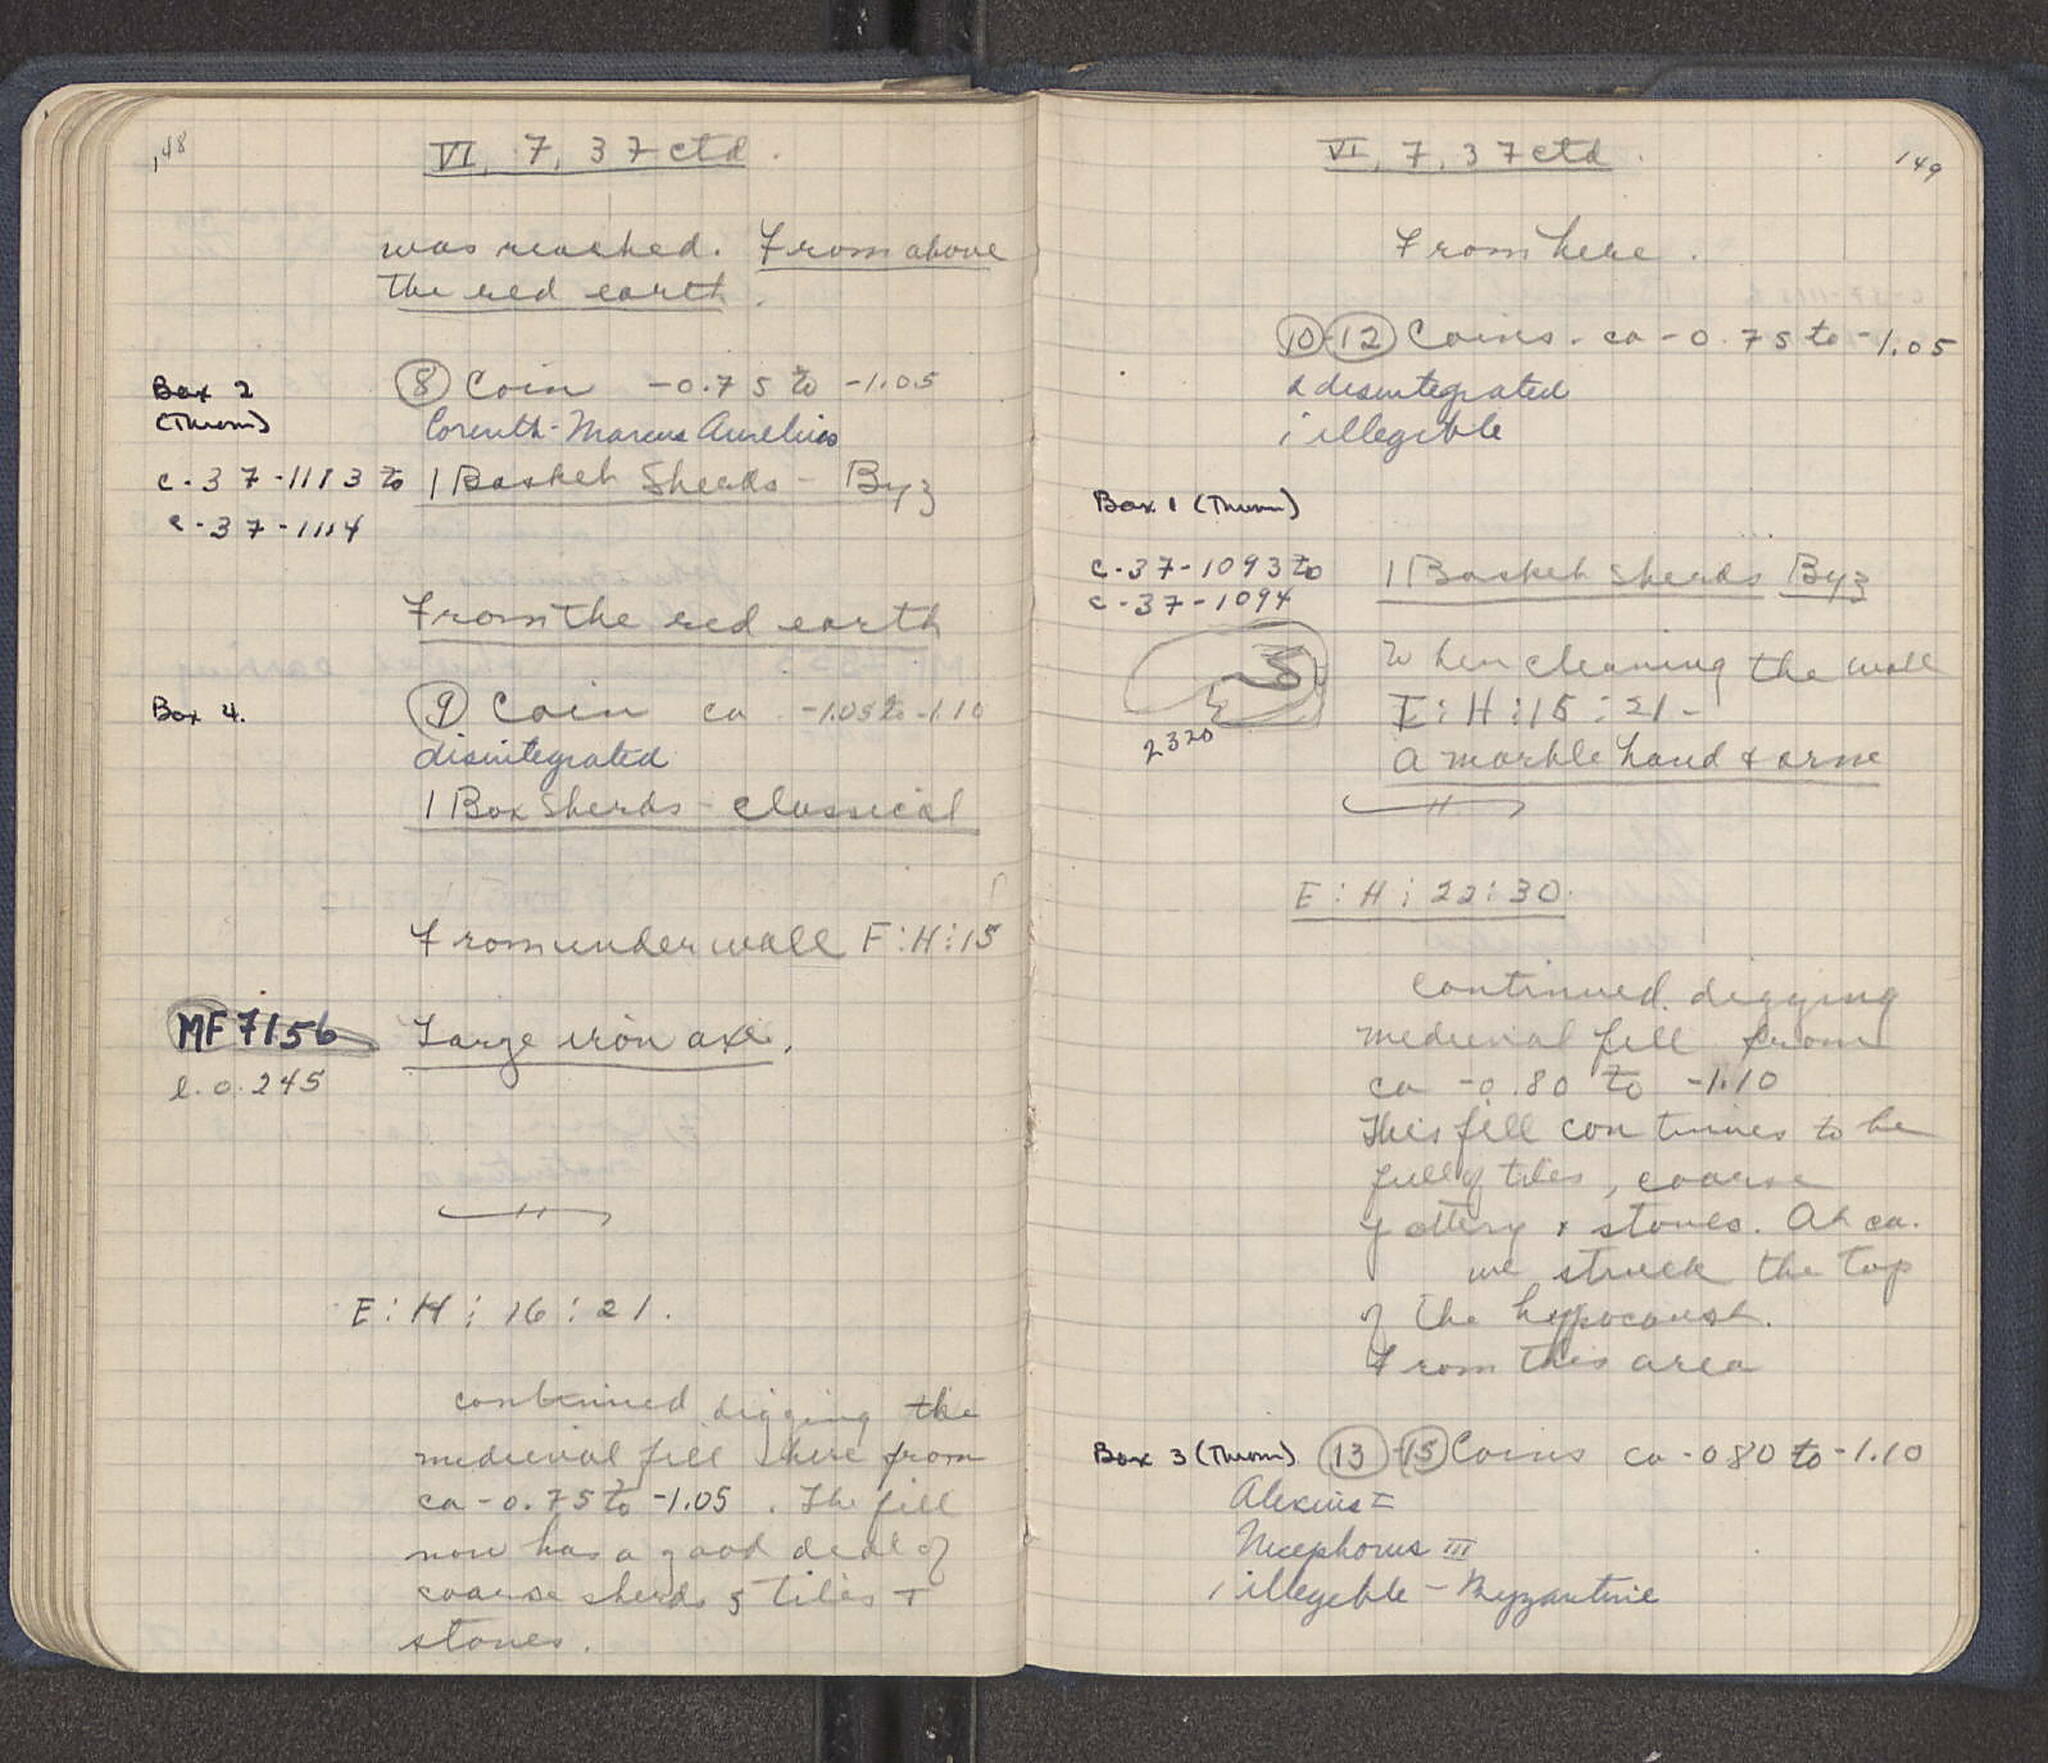 148
VI, 7, 37 ctd.
was reached. From above
the red earth.
Box 2
(Throm)
⑧ Coin -0.75 to -1.05
Corinth - Marcus Aurelius
c-37-1113 to
c-37-1114
1 Basket Sherds - Byz
From the red earth
Box 4.
⑨ Coin ca -1.05 to -1.10
disintegrated
1 Box Sherds - classical
From under wall E:H:15
MF 7156
l. 0.245
Large iron axe.
E:H:16:21.
continued digging the
medieval fill here from
ca -0.75 to -1.05. The fill
now has a good deal of
coarse sherds, tiles +
stones.
149
VI, 7, 37 ctd.
From here.
⑩-⑫ Coins - ca -0.75 to -1.05
2 disintegrated
1 illegible
Box 1 (Throm)
c-37-1093 to
c-37-1094
1 Basket Sherds Byz
2320
When cleaning the wall
E:H:15:21-
a marble hand & arm
E:H:22:30.
continued digging
medieval fill from
ca -0.80 to -1.10
This fill continues to be
full of tiles, coarse
pottery & stones. At ca.
we struck the top
of the hypocaust.
From this area
Box 3 (Throm)
⑬-⑮ Coins ca -0.80 to -1.10
Alexius I
Nicephorus III
1 illegible - Byzantine